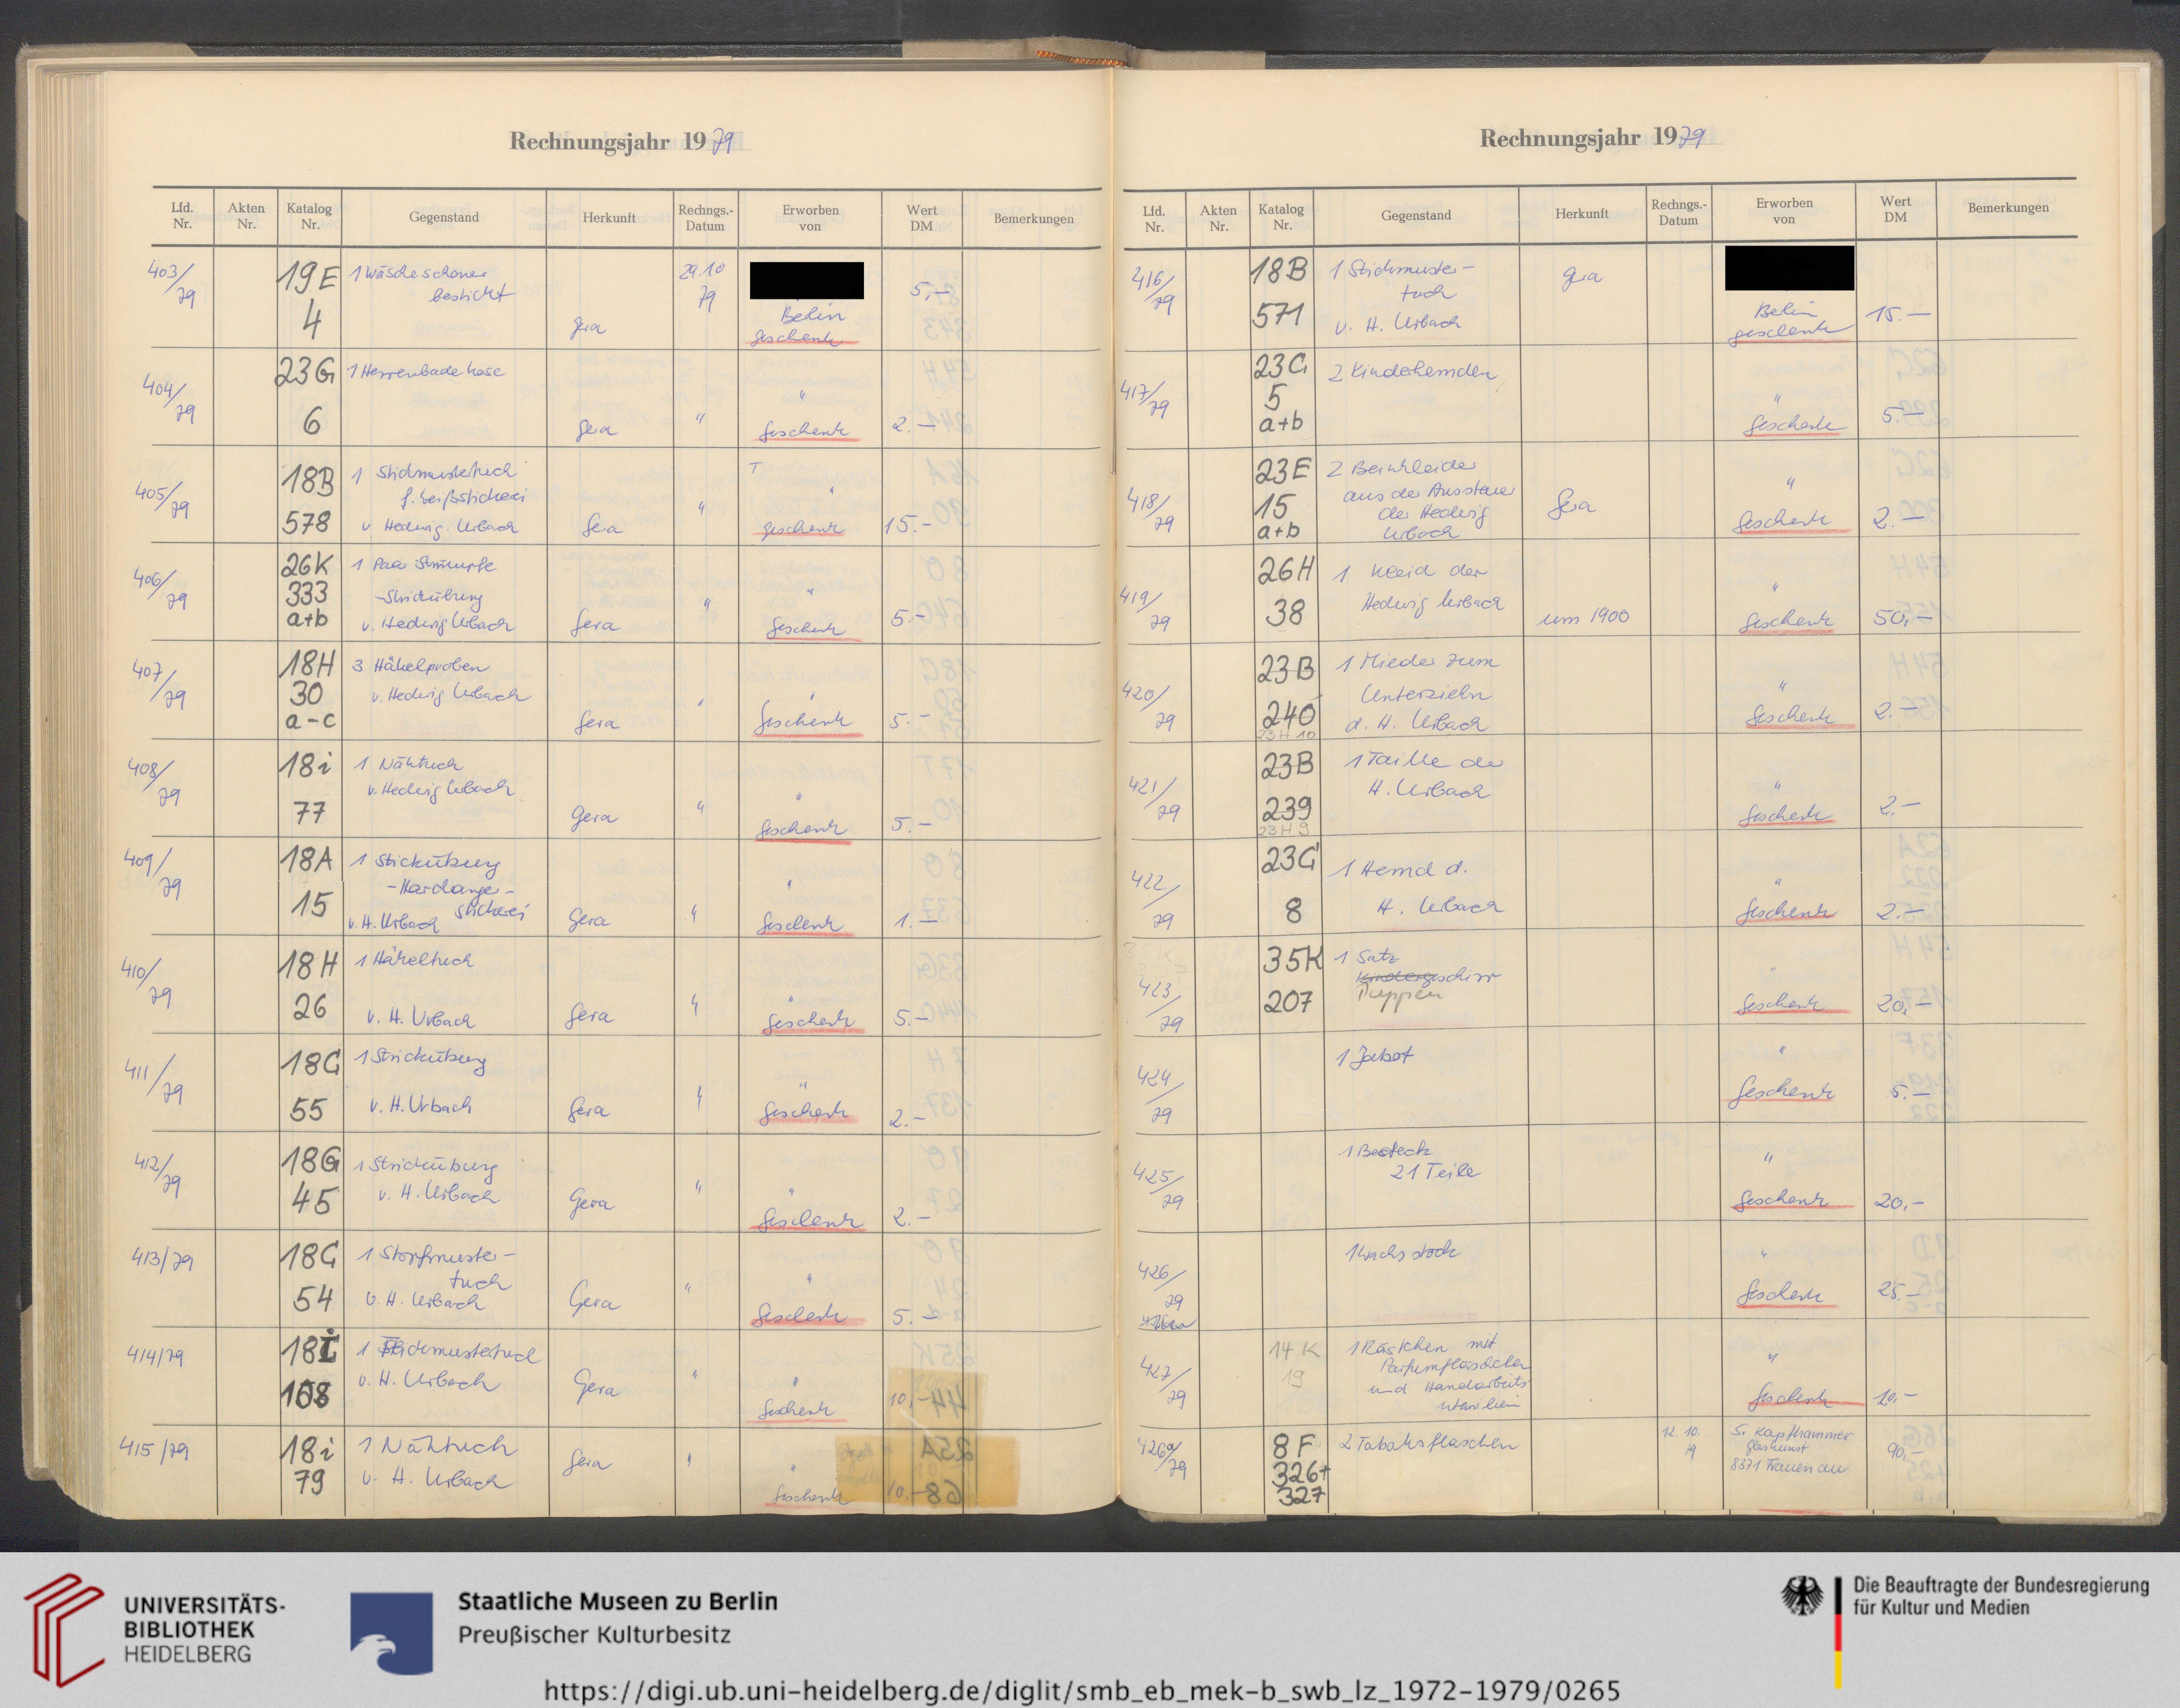 Rechnungsjahr 1979
Lfd. Nr. Akten Nr. Katalog Nr. Gegenstand Herkunft Rechngs.-Datum Erworben von Wert DM Bemerkungen
403/79 19E 4 1 Wäscheschoner bestickt Gera 29.10 79 Berlin Geschenk 5,-
404/79 23G 6 1 Herrenbadehose Gera " " Geschenk 2.-
405/79 18B 578 1 Stickmustertuch f. Weißstickerei v Hedwig Urbach Gera " " Geschenk 15.-
406/79 26K 333 a+b 1 Paar Strümpfe -Strickübung v. Hedwig Urbach Gera " " Geschenk 5.-
407/79 18H 30 a-c 3 Häkelproben v. Hedwig Urbach Gera " " Geschenk 5.-
408/79 18i 77 1 Nähtuch v. Hedwig Urbach Gera " " Geschenk 5.-
409/79 18A 15 1 Stickübung -Hardanger- stickerei v. H. Urbach Gera " " Geschenk 1.-
410/79 18H 26 1 Häkeltuch v. H. Urbach Gera " " Geschenk 5.-
411/79 18G 55 1 Strickübung v. H. Urbach Gera " " Geschenk 2.-
412/79 18G 45 1 Strickübung v. H. Urbach Gera " " Geschenk 2.-
413/79 18G 54 1 Stopfmuster-tuch v. H. Urbach Gera " " Geschenk 5.-
414/79 18i 108 1 Stickmustertuch v. H. Urbach Gera " " Geschenk 10,-
415/79 18i 79 1 Nähtuch v. H. Urbach Gera " " Geschenk 10.-
Rechnungsjahr 1979
Lfd. Nr. Akten Nr. Katalog Nr. Gegenstand Herkunft Rechngs.-Datum Erworben von Wert DM Bemerkungen
416/79 18B 571 1 Stickmuster-tuch v. H. Urbach Gera Berlin Geschenk 15.-
417/79 23G 5 a+b 2 Kinderhemden " Geschenk 5.-
418/79 23E 15 a+b 2 Beinkleider aus der Aussteuer der Hedwig Urbach Gera " Geschenk 2.-
419/79 26H 38 1 Kleid der Hedwig Urbach um 1900 " Geschenk 50,-
420/79 23B 240 23 H 10 1 Mieder zum Unterziehn d. H. Urbach " Geschenk 2.-
421/79 23B 239 23 H 9 1 Taille der H. Urbach " Geschenk 2,-
422/79 23G 8 1 Hemd d. H. Urbach " Geschenk 2.-
423/79 35K 207 1 Satz Kindergeschirr Puppen " Geschenk 20,-
424/79 1 Jabot " Geschenk 5.-
425/79 1 Besteck 21 Teile " Geschenk 20,-
426/79 1 Wachsstock " Geschenk 25.-
427/79 14 K 19 1 Kästchen mit Parfümfläschchen und Handarbeits utensilien " Geschenk 10,-
426a/79 8F 326+ 327 2 Tabaksflaschen 12. 10. 79 S. Kapfhammer Glaskunst 8371 Frauenau 90,-
UNIVERSITÄTS-
BIBLIOTHEK
HEIDELBERG
Staatliche Museen zu Berlin
Preußischer Kulturbesitz
Die Beauftragte der Bundesregierung
für Kultur und Medien
https://digi.ub.uni-heidelberg.de/diglit/smb_eb_mek-b_swb_lz_1972-1979/0265